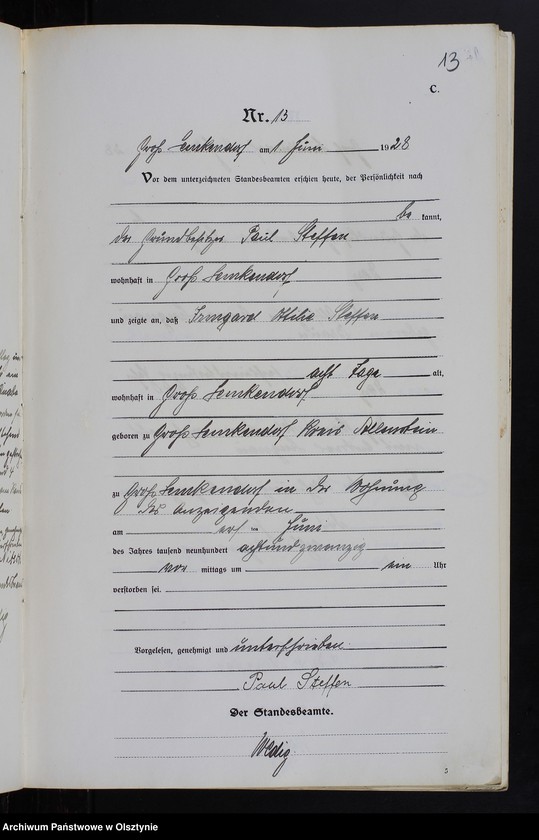 13
C.
Nr. 13
Groß Lemkendorf am 1. Juni 1928
Vor dem unterzeichneten Standesbeamten erschien heute, der Persönlichkeit nach
be kannt,
der Grundbesitzer Paul Steffen
wohnhaft in Groß Lemkendorf
und zeigte an, daß Irmgard Ottilie Steffen
acht Tage alt,
wohnhaft in Groß Lemkendorf
geboren zu Groß Lemkendorf Kreis Allenstein
zu Groß Lemkendorf in der Wohnung
des Anzeigenden
am ersten Juni
des Jahres tausend neunhundert achtundzwanzig
vor mittags um ein Uhr
verstorben sei.
Vorgelesen, genehmigt und unterschrieben
Paul Steffen
Der Standesbeamte.
5
Archiwum Państwowe w Olsztynie